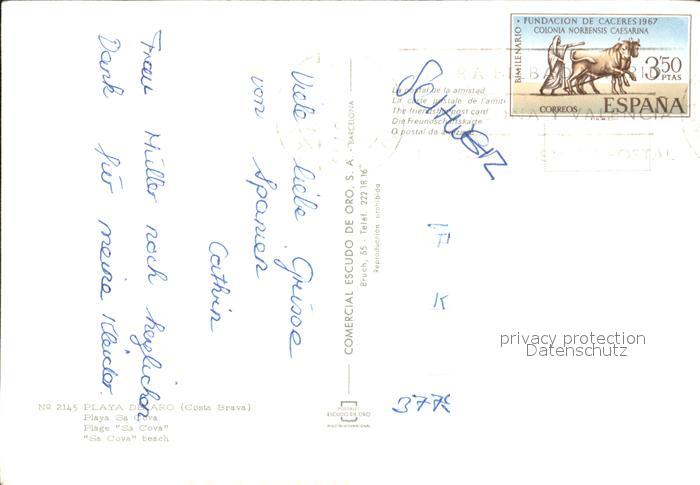 Viele liebe Grüsse
von Spanien
Cathrin
Frau Müller noch herzlichen
Dank für meine Kleider.
SCHWEIZ
BIMILENARIO · FUNDACION DE CACERES 1967
COLONIA NORBENSIS CAESARINA
3'50
PTAS
CORREOS
ESPAÑA
La postal de la amistad
La carte postale de l'amitié
The friendship post card
Die Freundschaftskarte
O postal da
COMERCIAL ESCUDO DE ORO, S. A. - BARCELONA
Bruch, 55 - Teléf. 222 18 16
Reproducción prohibida
privacy protection
Datenschutz
Nº 2145 PLAYA DE ARO (Costa Brava)
Playa Sa Cova
Plage "Sa Cova"
"Sa Cova" beach
POSTALES
ESCUDO DE ORO